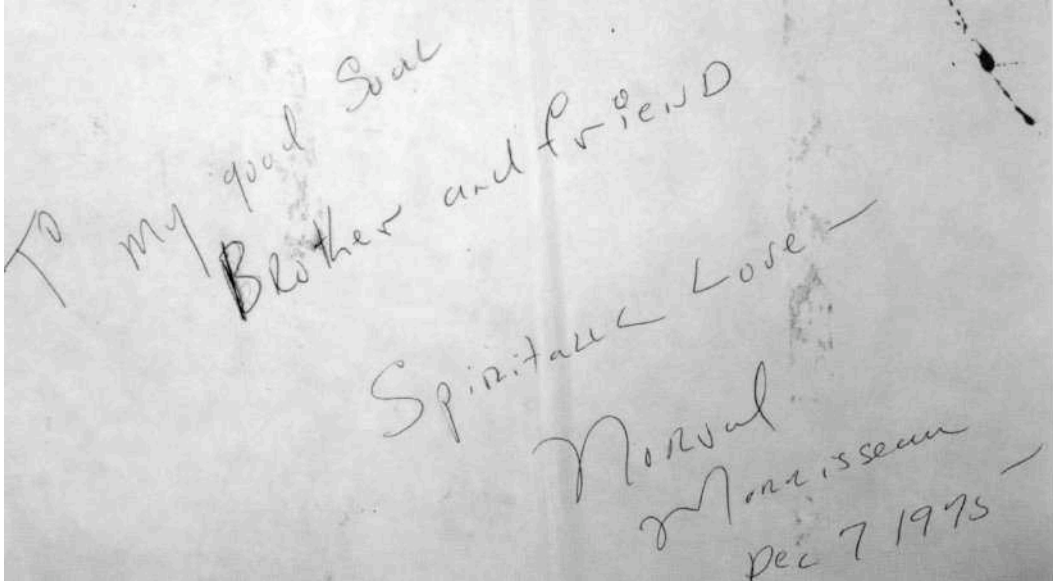 To my good Soal
Brother and friend
Spiritaul Love -
Norval
Morrisseau
Dec 7 1975 -